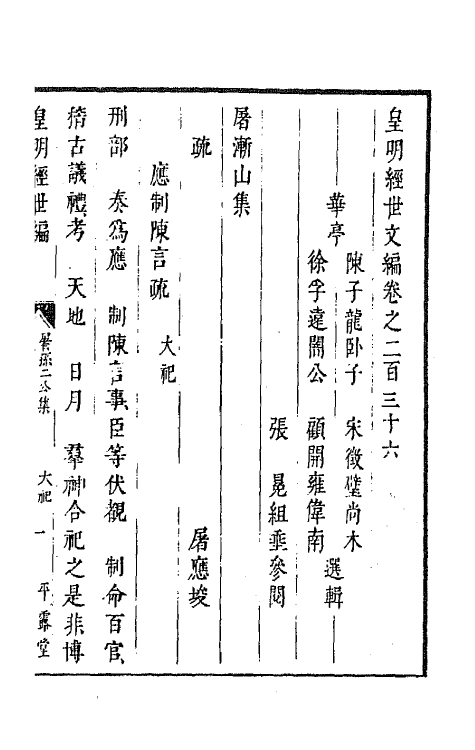 皇明經世文編卷之二百三十六
華亭
陳子龍臥子 宋徵璧尚木
徐孚遠闇公 顧開雍偉南
選輯
張 㫤組垂參閱
屠漸山集
疏 屠應埈
應制陳言疏 大祀
刑部 奏爲應 制陳言事臣等伏覩 制命百官
稽古議禮考 天地 日月 羣神合祀之是非博
皇明經世編 屠孫二公集 大祀 一 平露堂